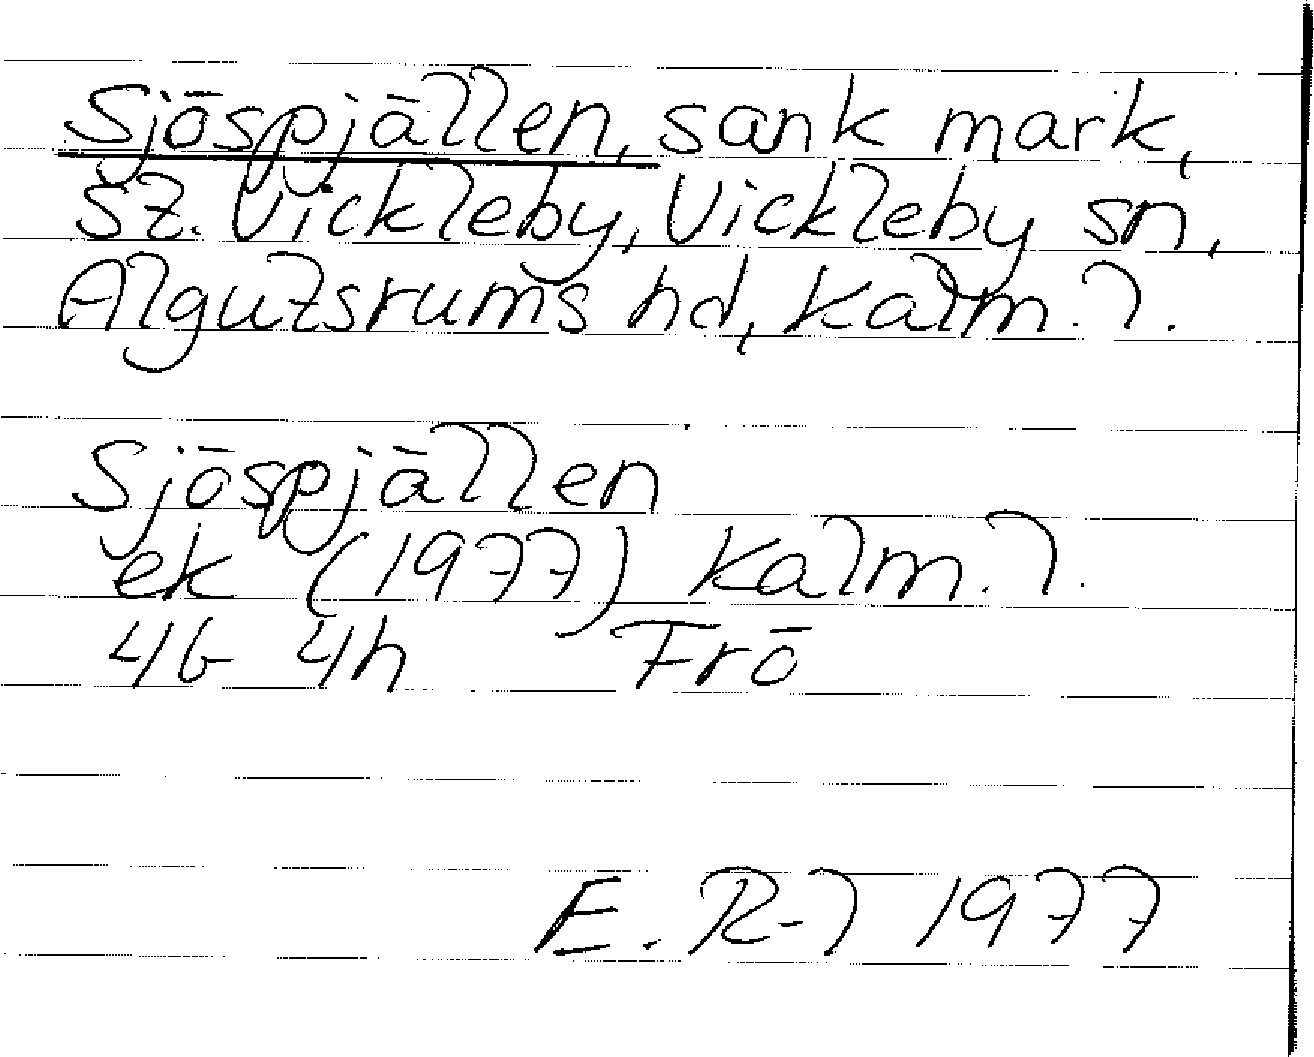 Sjöspjällen, sank mark,
St. Vickleby, Vickleby sn,
Algutsrums hd, Kalm. l.
Sjöspjällen
ek (1977) Kalm. l.
4G 4h Frö
E. R-l 1977